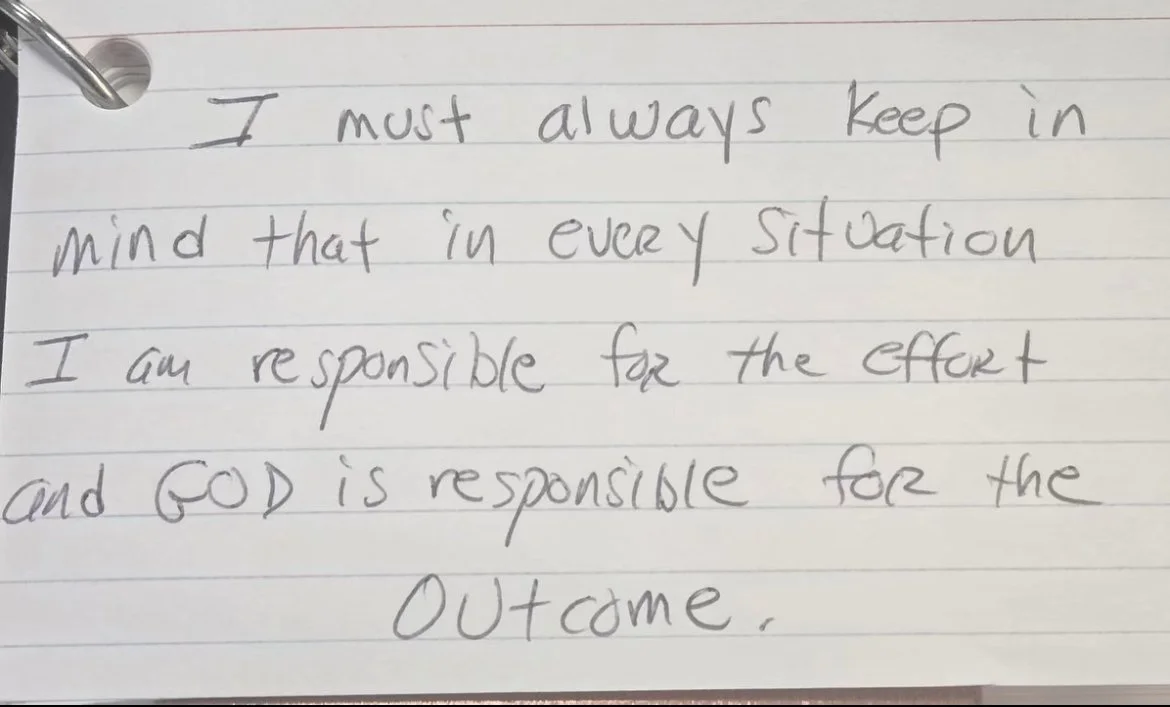 I must always keep in
mind that in every situation
I am responsible for the effort
and GOD is responsible for the
outcome.